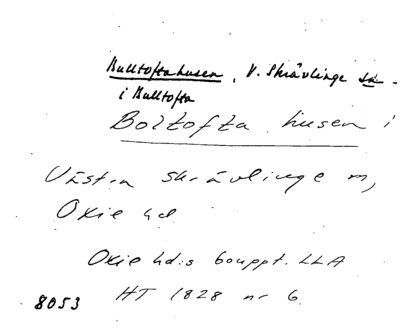 Bulltoftahusen, V. Skrävlinge sn
i Bulltofta
Boltofta husen i
Västra skrävlinge sn,
Oxie hd
Oxie hd:s bouppt. LLA
HT 1828 nr 6.
8053